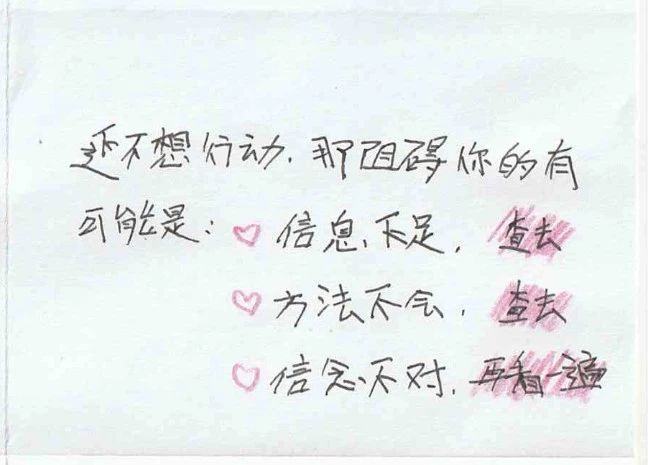 还不想行动，那阻碍你的有
可能是：♡ 信息不足，查去
♡ 方法不会，查去
♡ 信念不对，再看一遍